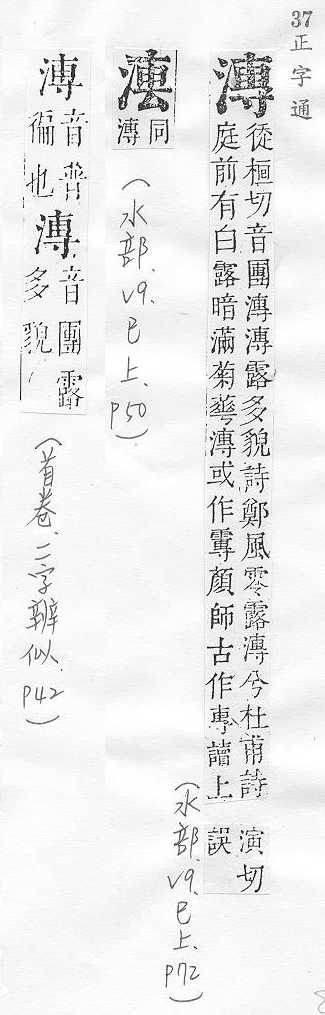 37
正字通
漙
從桓切音團漙漙露多貌詩鄭風零露漙兮杜甫詩
庭前有白露暗滿菊蕐漙或作䨬顏師古作專讀上
演切
誤
（水部、V9、巳上、P72）
同
漙
（水部、V9、巳上、P50）
溥
音普
徧也
漙
音團露
多貌
（首卷、二字辨似、P42）